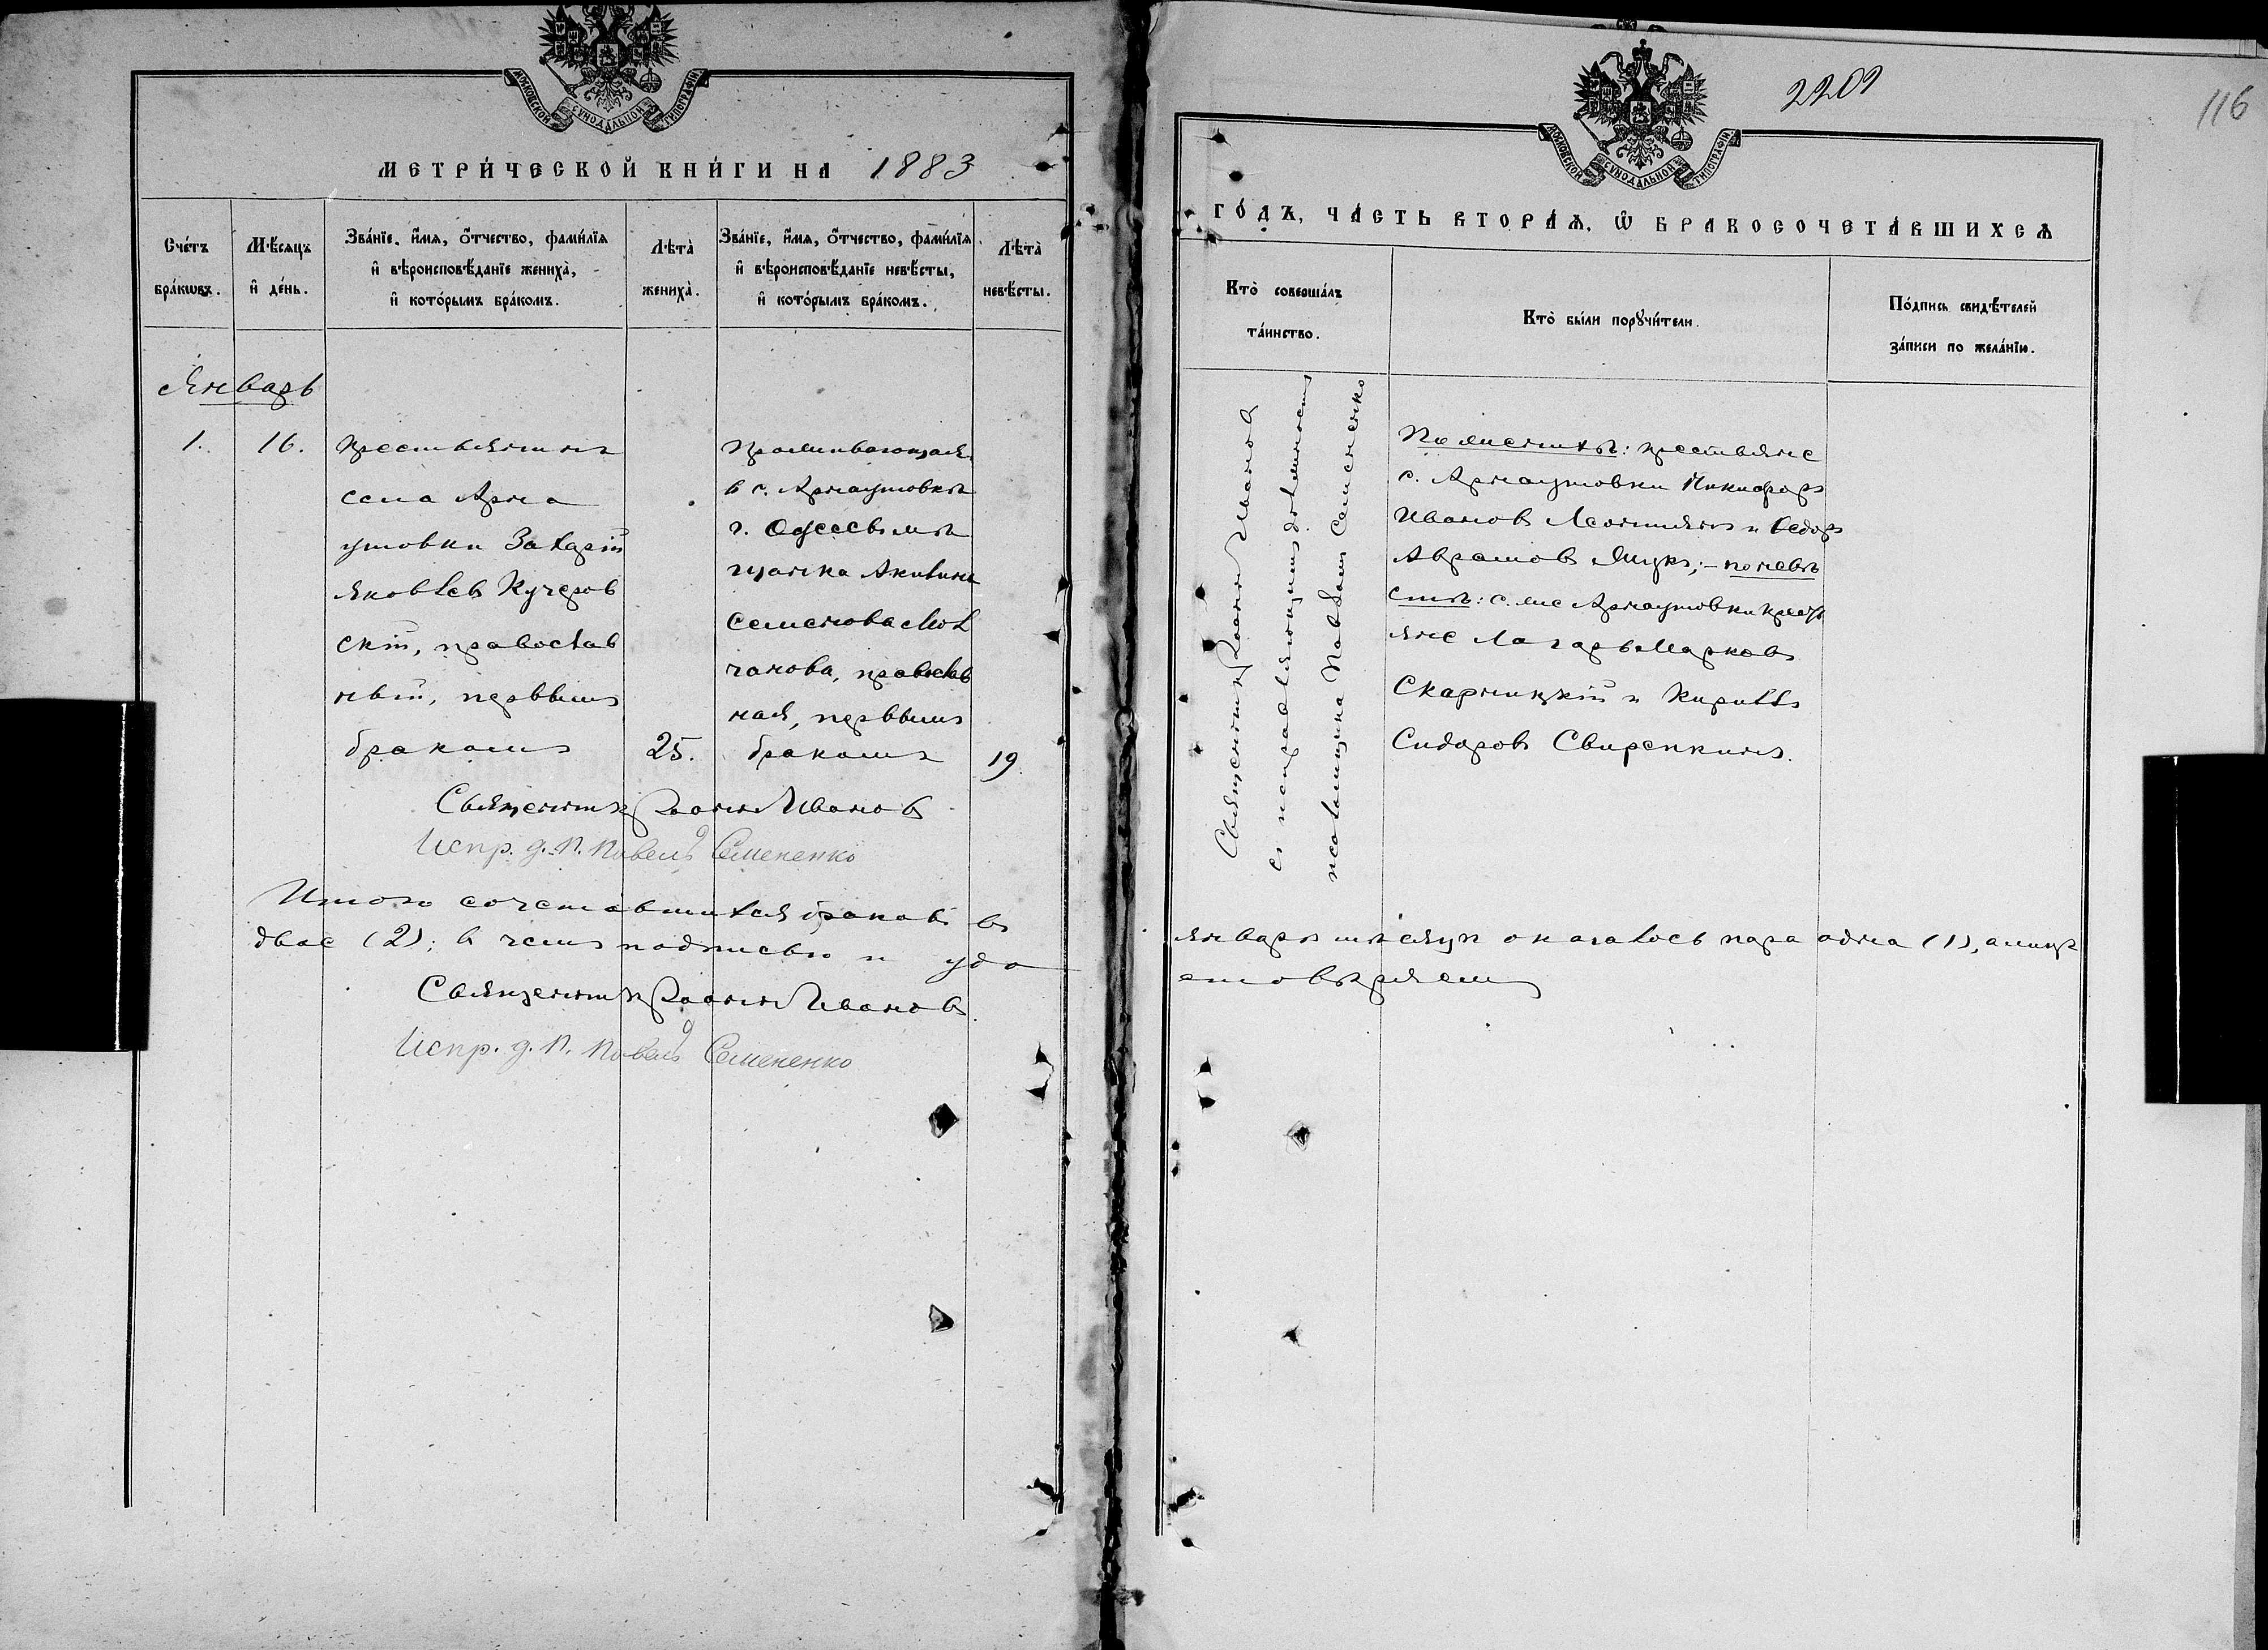 МОСКОВСКОЙ СУНОДАЛЬНОЙ ТИПОГРАФІИ
МЕТРИ́ЧЕСКОЙ КНИ́ГИ НА 1883
Сче́тъ бра́кѡвъ.
Мѣ́сяцъ и҆ де́нь.
Зва́нїе, и҆́мя, ѻ҆́тчество, фами́лїя
и҆ вѣроисповѣ́данїе жениха̀,
и҆ кото́рымъ бра́комъ.
Лѣта̀ жениха̀.
Зва́нїе, и҆́мя, ѻ҆́тчество, фами́лїя
и҆ вѣроисповѣ́данїе невѣ́сты,
и҆ кото́рымъ бра́комъ.
Лѣта̀ невѣ́сты.
Январь
1.
16.
Крестьянинъ
села Арна
утовки Захарій
Яковлевъ Кучеров
скій, православ
ный, первымъ
бракомъ
25.
Проживающая
в с. Арнаутовкѣ
г. Одессы мѣ
щанка Акилина
Семенова Мол
чанова, православ
ная, первымъ
бракомъ
19.
Священникъ Іоаннъ Ивановъ
Испр. д. П. Павелъ Семененко
Итого сочетавшихся браковъ въ
двое (2); въ чемъ подписью и удо
Священникъ Іоаннъ Ивановъ.
Испр. д. П. Павелъ Семененко
2201
116
МОСКОВСКОЙ СУНОДАЛЬНОЙ ТИПОГРАФІИ
ГО́ДЪ, ЧА́СТЬ ВТОРА́Ѧ, Ѽ БРАКОСОЧЕТА́ВШИХСѦ
Кто̀ соверша́лъ
та́инство.
Кто̀ бы́ли порꙋчи́тели.
По́дпись свидѣ́телей
за́писи по жела́нїю.
Священникъ Іоаннъ Ивановъ
съ исправляющимъ должность
псаломщика Павломъ Семененко
По женихѣ: крестьяне
с. Арнаутовки Никифоръ
Ивановъ Леонтьянъ и Ѳедоръ
Аврамовъ Ящукъ; - по невѣ
стѣ: с. же Арнаутовки кресть
яне Лазарь Марковъ
Скарницкій и Кириллъ
Сидоровъ Свирепкинъ.
январѣ мѣсяцѣ оказалось пара одна (1), а лицъ
стовѣряемъ